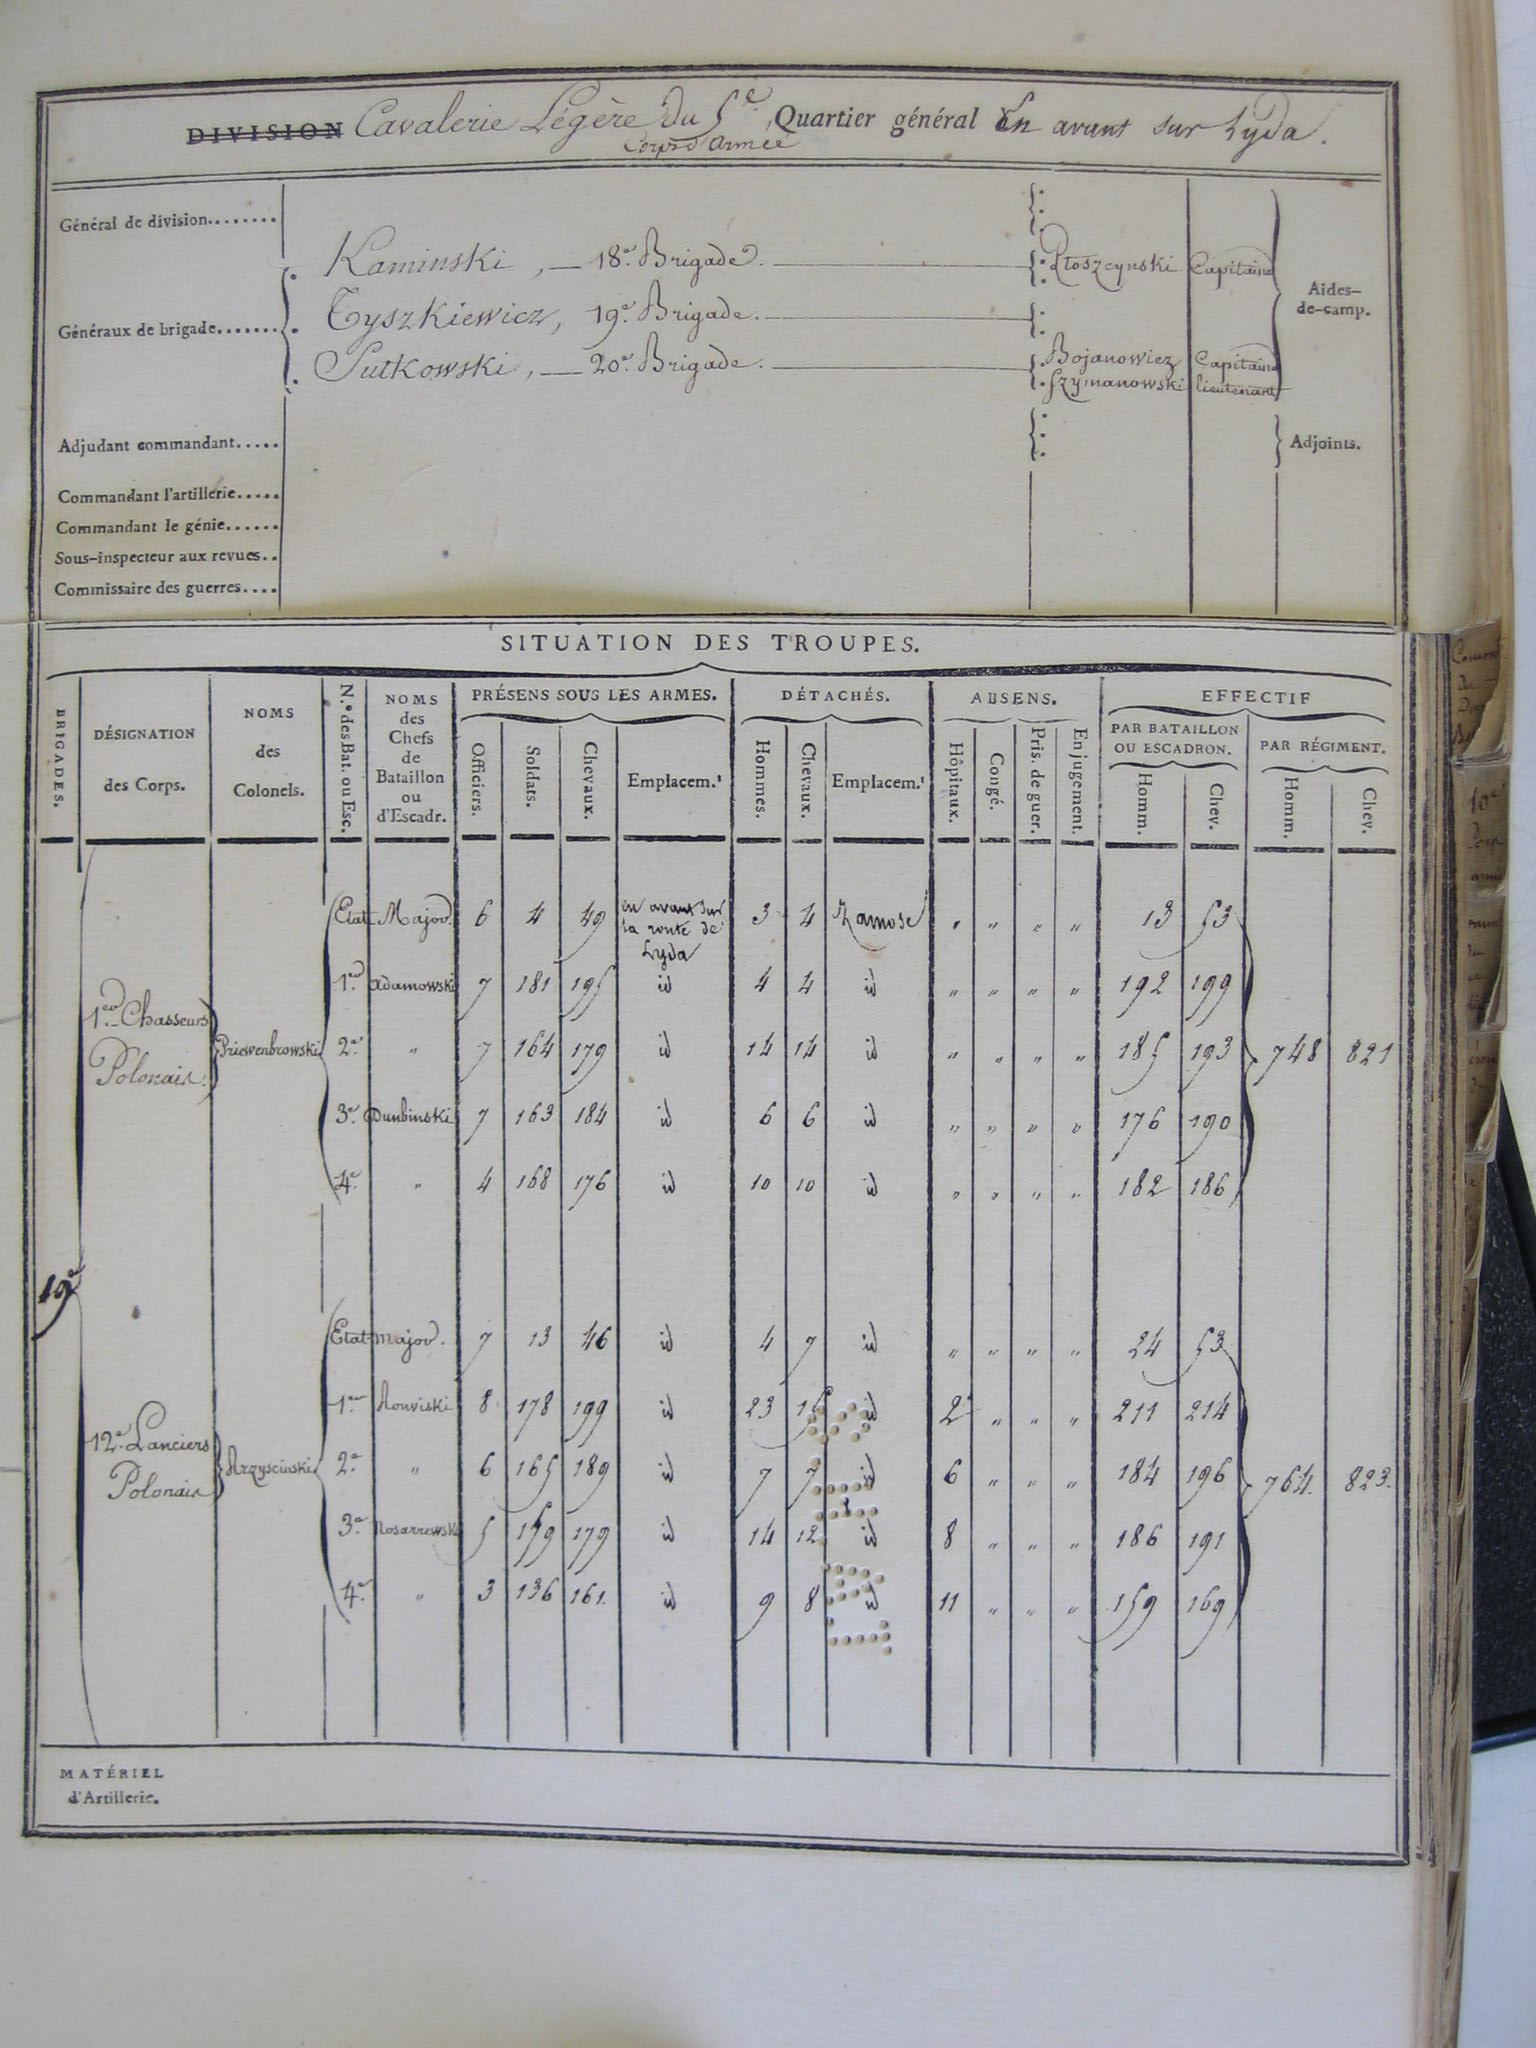 DIVISION Cavalerie Légère du 5e Quartier général En avant sur Lyda.
Corps d'Armée
Général de division........
Kaminski, — 18e. Brigade. Ploszcynski Capitaine
Aides-de-camp.
Généraux de brigade....... Tyszkiewicz, 19e. Brigade.
Sutkowski, — 20e. Brigade. Bojanowicz Capitaine
Szymanowski lieutenant
Adjudant commandant..... Adjoints.
Commandant l'artillerie.....
Commandant le génie......
Sous-inspecteur aux revues..
Commissaire des guerres....
SITUATION DES TROUPES.
BRIGADES. DÉSIGNATION des Corps. NOMS des Colonels. N.os des Bat. ou Esc. NOMS des Chefs de Bataillon ou d'Escadr. PRÉSENS SOUS LES ARMES. DÉTACHÉS. ABSENS. EFFECTIF
PAR BATAILLON OU ESCADRON. PAR RÉGIMENT.
Officiers. Soldats. Chevaux. Emplacem.t Hommes. Chevaux. Emplacem.t Hôpitaux. Congé. Pris. de guer. En jugement. Homm. Chev. Homm. Chev.
Etat-Major. 6 4 49 en avant sur la route de Lyda 3 4 Zamosc " " " " 13 53
1er. Adamowski 7 181 195 id 4 4 id " " " " 192 199
1er. Chasseurs Polonais. Priewenbrowski 2e. " 7 164 179 id 14 14 id " " " " 185 193 748 821
3e. Dunbinski 7 163 184 id 6 6 id " " " " 176 190
4e. " 4 168 176 id 10 10 id " " " " 182 186
19e
Etat-major. 7 13 46 id 4 7 id " " " " 24 53
1er Rouviski 8 178 199 id 23 15 id 2 " " " 211 214
12e. Lanciers Polonais Arzyscinski 2e. " 6 165 189 id 7 7 id 6 " " " 184 196 764. 823.
3e. Nosarrewski 5 159 179 id 14 12 id 8 " " " 186 191
4e. " 3 136 161. id 9 8 id 11 " " " 159 169
MATÉRIEL
d'Artillerie.